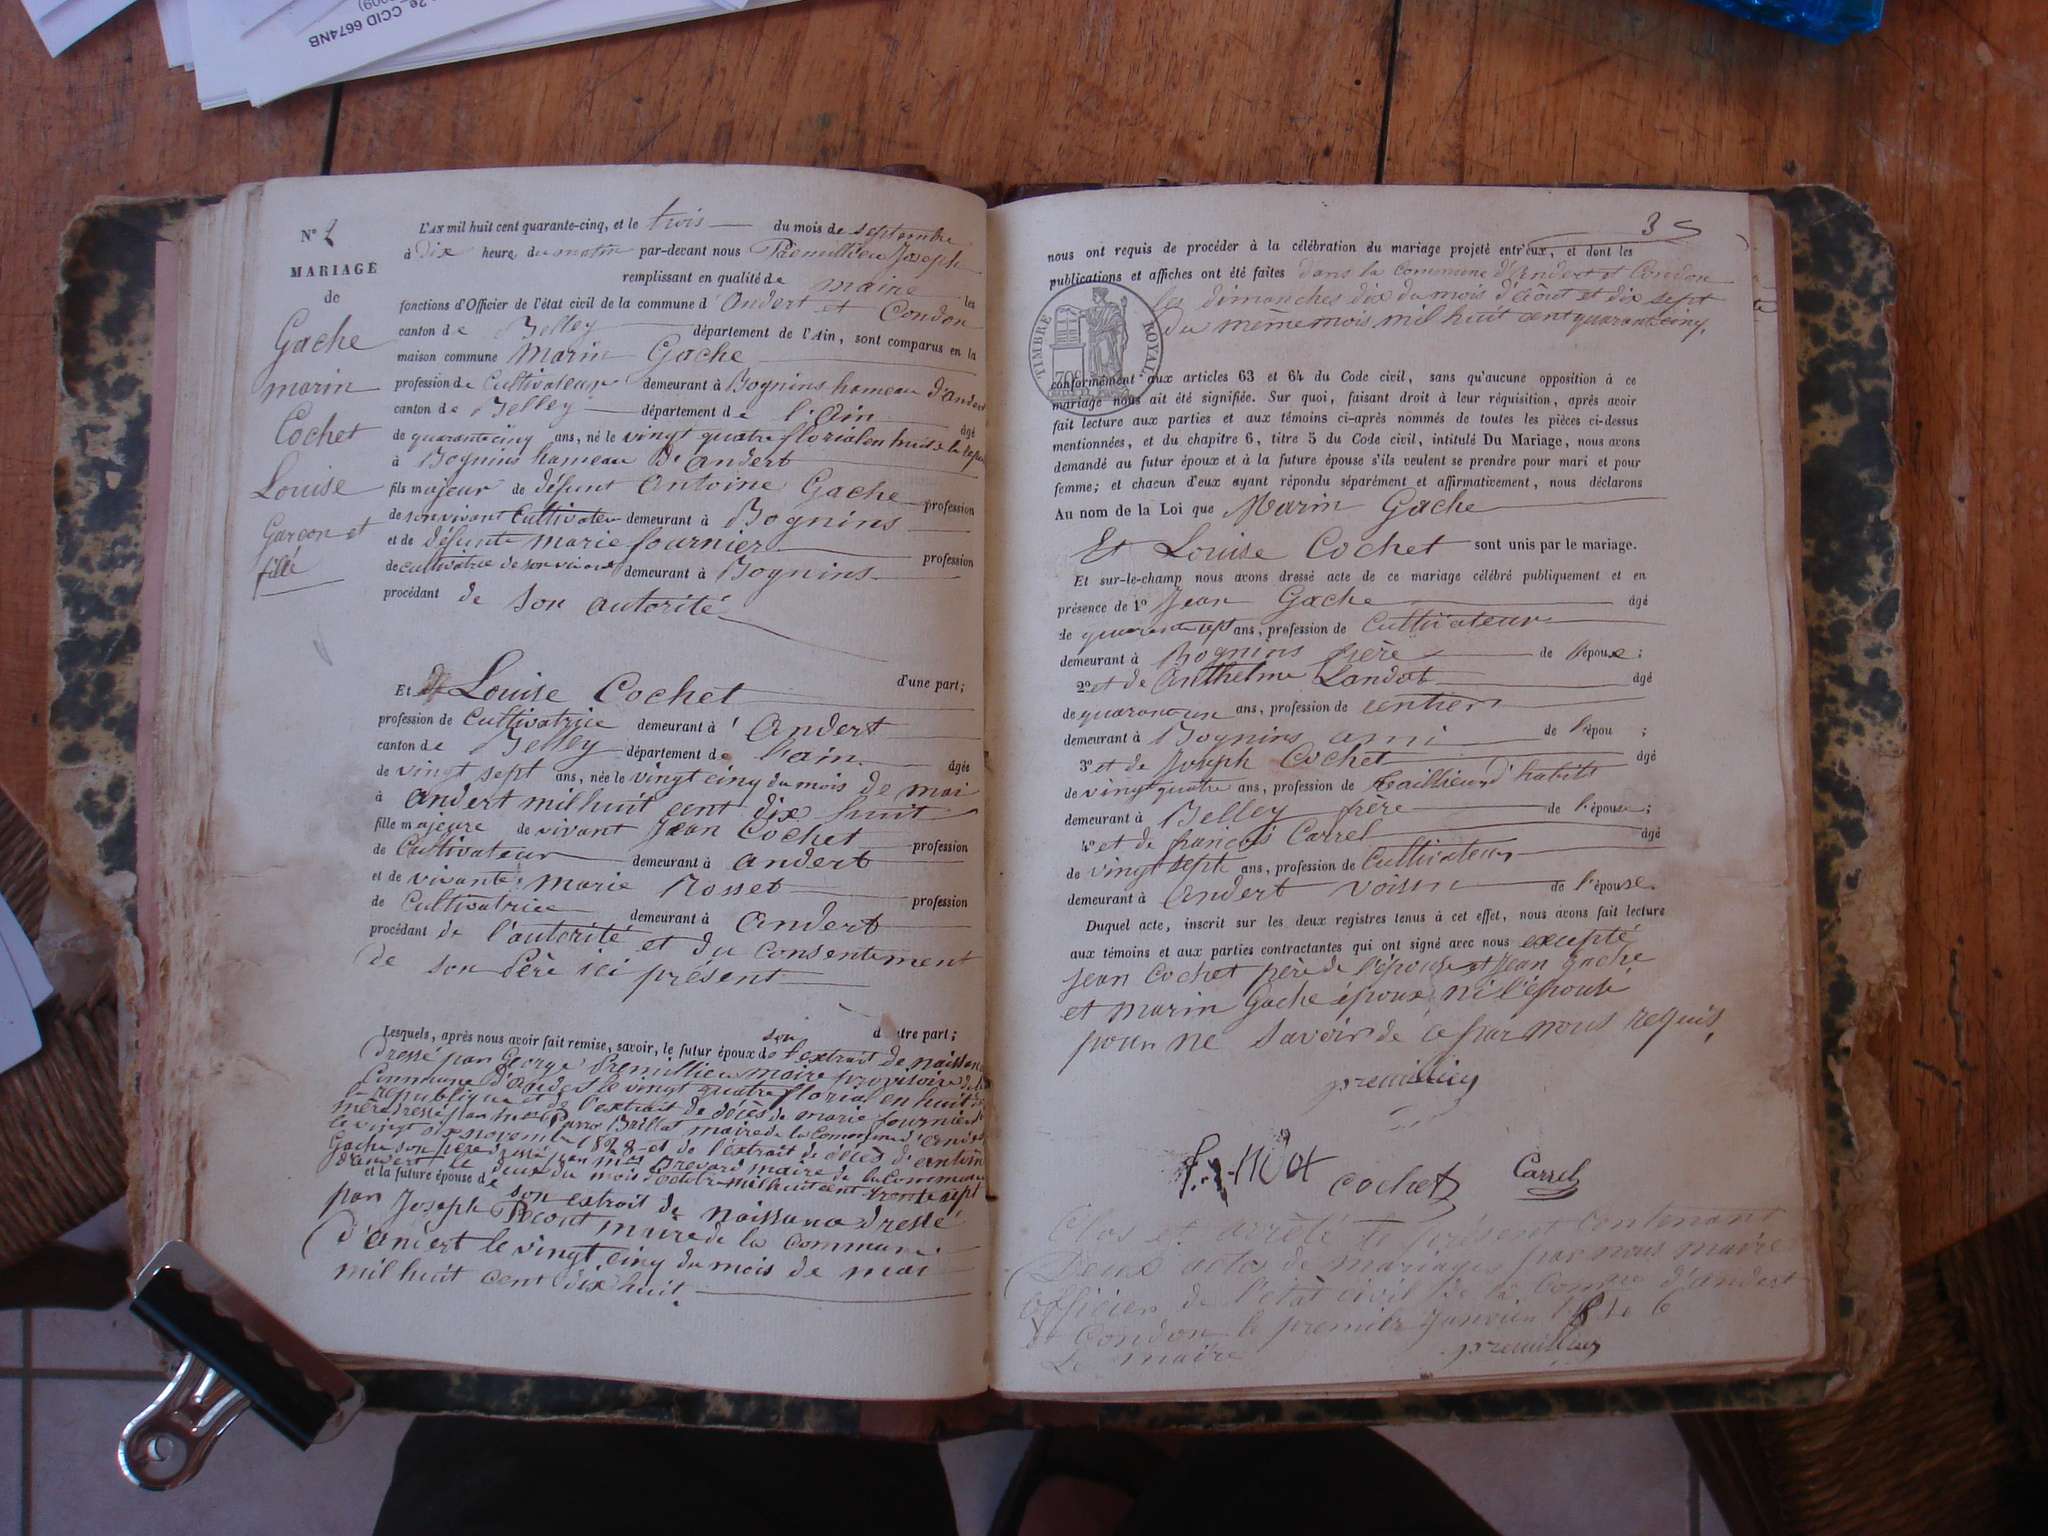 2e CCID 6674NB
N° 2
MARIAGE
de
Gache
marin
Cochet
Louise
Garçon et
fille
L'AN mil huit cent quarante-cinq, et le trois du mois de septembre
à dix heure du matin par-devant nous Premillieu Joseph
remplissant en qualité de maire les
fonctions d'Officier de l'état civil de la commune d'Andert et Condon
canton de Belley département de l'Ain, sont comparus en la
maison commune Marin Gache
profession de Cultivateur demeurant à Bognins hameau d'andert
canton de Belley département de l'Ain âgé
de quarante cinq ans, né le vingt quatre florial en huit de la
à Bognins hameau D'andert
fils majeur de défunt Antoine Gache profession
de son vivant Cultivateur demeurant à Bognins
et de défunte marie fournier profession
de cultivatrice de son vivant demeurant à Bognins
procédant de son autorité
d'une part;
Et Louise Cochet
profession de Cultivatrice demeurant à Andert
canton de Belley département de l'ain âgée
de vingt sept ans, née le vingt cinq du mois de mai
à andert mil huit cent dix huit
fille majeure de vivant Jean Cochet profession
de Cultivateur demeurant à andert
et de vivante marie Rosset profession
de Cultivatrice demeurant à Andert
procédant de l'autorité et du Consentement
de son Père ici présent
d'autre part;
Lesquels, après nous avoir fait remise, savoir, le futur époux de son l'extrait de naissance
dressé par George Premillieu maire provisoire de la
Commune d'Andert le vingt quatre florial en huit de
république et de l'extrait de décès de marie fournier
mère dressé par Brillat maire de la Commune d'andert
le vingt six novembre 1828 et de l'extrait de décès d'antoine
Gache son père dressé par Brevard maire de la Commune
d'andert le deux du mois octobre mil huit cent trente sept
et la future épouse de son extrait de naissance dressé
par Joseph maire de la Commune
d'andert le vingt cinq du mois de mai
mil huit cent dix huit.
35
nous ont requis de procéder à la célébration du mariage projeté entr'eux, et dont les
publications et affiches ont été faites dans la Commune d'Andert et Condon
les dimanches dix du mois d'Août et dix sept
du même mois mil huit cent quarante cinq.
TIMBRE ROYAL
70c
conformément aux articles 63 et 64 du Code civil, sans qu'aucune opposition à ce
mariage nous ait été signifiée. Sur quoi, faisant droit à leur réquisition, après avoir
fait lecture aux parties et aux témoins ci-après nommés de toutes les pièces ci-dessus
mentionnées, et du chapitre 6, titre 5 du Code civil, intitulé Du Mariage, nous avons
demandé au futur époux et à la future épouse s'ils veulent se prendre pour mari et pour
femme; et chacun d'eux ayant répondu séparément et affirmativement, nous déclarons
Au nom de la Loi que Marin Gache
Et Louise Cochet sont unis par le mariage.
Et sur-le-champ nous avons dressé acte de ce mariage célébré publiquement et en
présence de 1° Jean Gache âgé
de quarante sept ans, profession de Cultivateur
demeurant à Bognins frère de l'époux;
2° et de Anthelme Landot âgé
de quarante un ans, profession de rentier
demeurant à Bognins ami de l'épou ;
3° et de Joseph Cochet âgé
de vingt quatre ans, profession de tailleur d'habits
demeurant à Belley frère de l'épouse;
4° et de françois Carrel âgé
de vingt sept ans, profession de Cultivateur
demeurant à andert voisin de l'épouse.
Duquel acte, inscrit sur les deux registres tenus à cet effet, nous avons fait lecture
aux témoins et aux parties contractantes qui ont signé avec nous excepté
Jean Cochet père de l'épouse et Jean Gache
et marin Gache époux ni l'épouse
pour ne savoir de ce par nous requis.
premillieu
cochet
Carrel
Clos et arrêté le présent Contenant
Deux actes de mariages par nous maire
officier de l'état civil de la Comne d'andert
et Condon le premier Janvier 1846
Le maire premillieu